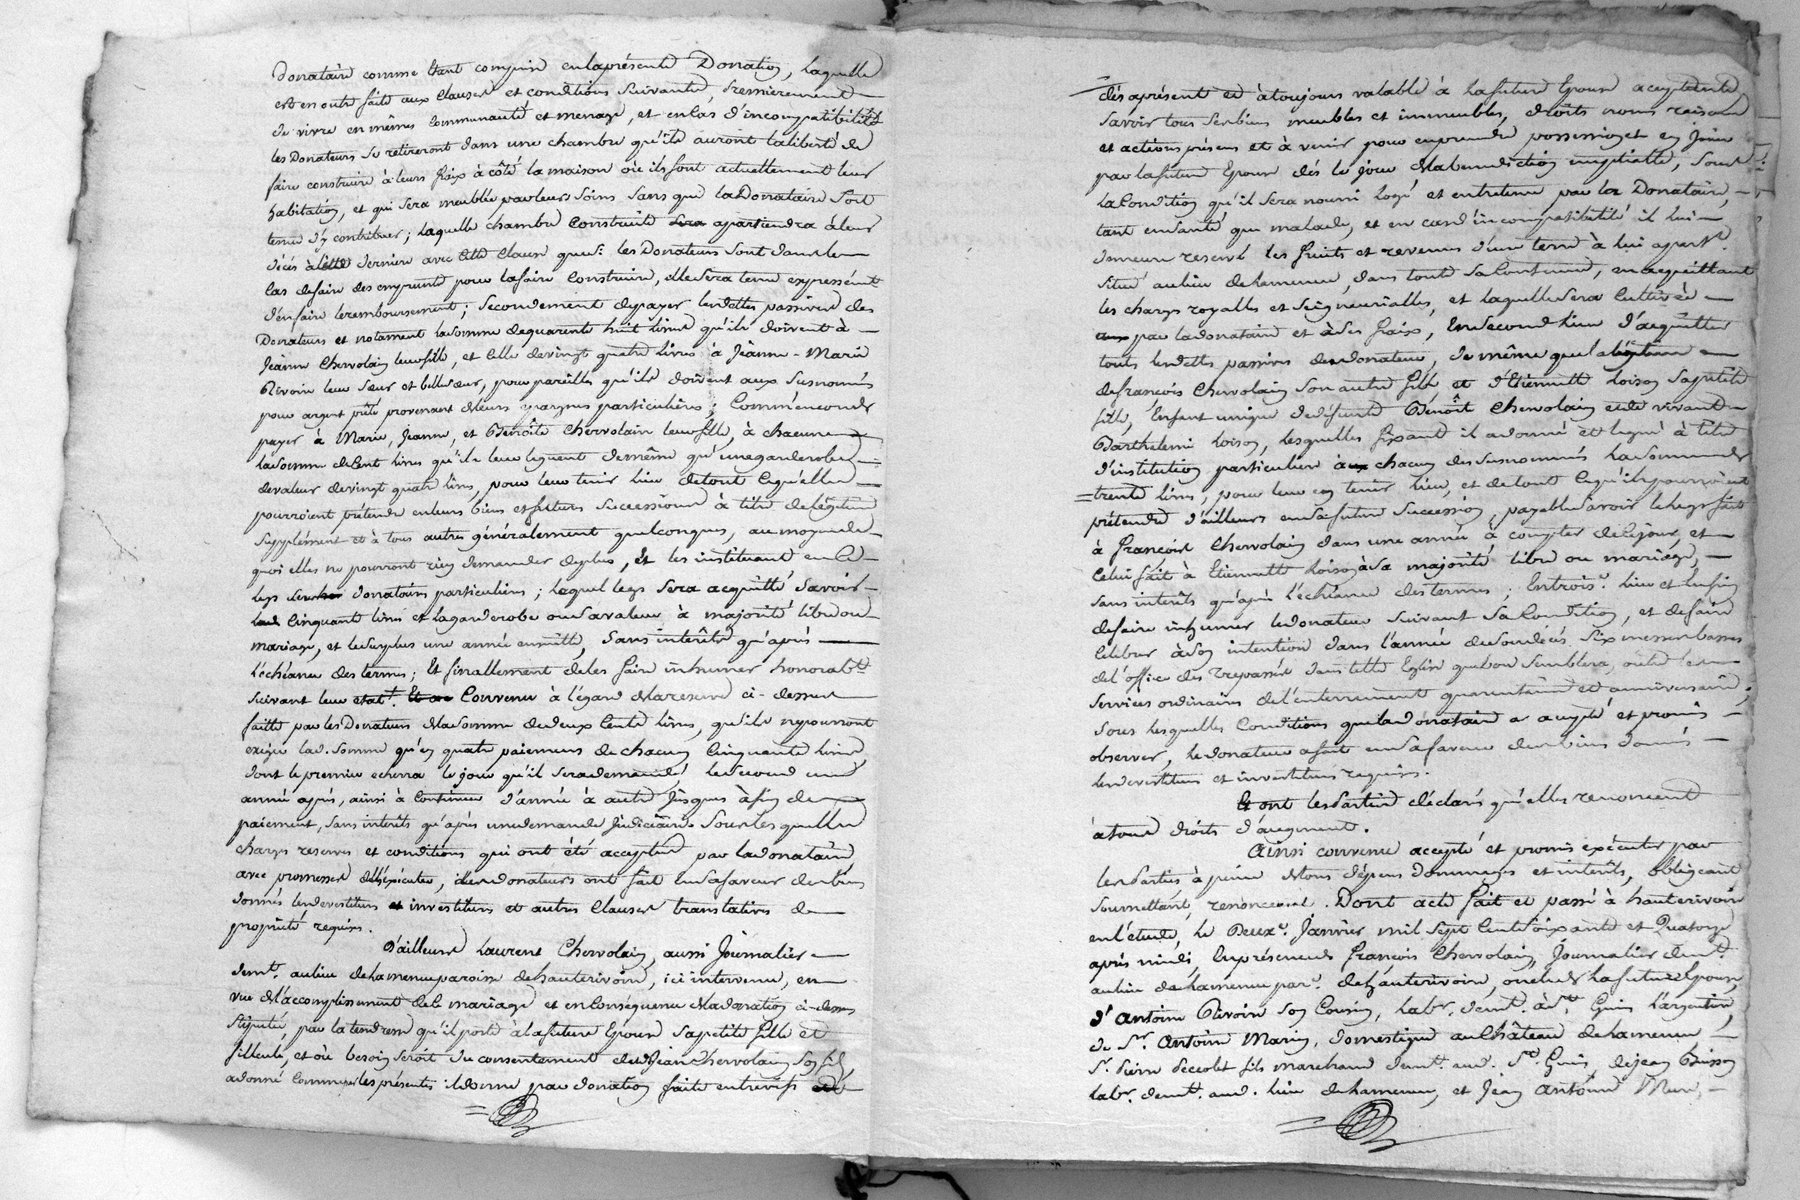 Donataire comme étant comprise en la présente Donation, laquelle
est en outre faite aux clauses et conditions suivante, Premierement
de vivre en mêmes communauté et menage, et en cas d'incompatibilité
les Donateurs se retireront dans une chambre qu'ils auront la liberté de
faire construire à leurs fraix à côté la maison où ils font actuellement leur
habitation, et qui sera meublée par leurs soins sans que la Donataire soit
tenue d'y contribuer; laquelle chambre construite apartiendra à leur
décés à cette derniere avec cette clause que si les Donateurs sont dans le
cas de faire des emprunts pour la faire construire, elle sera tenue expressément
d'en faire le remboursement; Secondement de payer les dettes passives des
Donateurs et notament la somme de quarente huit livres qu'ils doivent à
Jeanne Chervolain leur fille, et celle de vingt quatre livres à Jeanne-Marie
Pivoin leur sœur et belle sœur, pour pareilles qu'ils doivent aux susnomées
pour argent prété provenant de leurs epargnes particulieres; Comme encore de
payer à Marie, Jeanne, et Benoîte Chervolain leurs filles, à chacune
la somme de cent livres qu'ils leur leguent de même qu'une garderobe
de valeur de vingt quatre livres, pour leur tenir lieu de tout ce qu'elles
pourroient prétendre en leurs biens et futures successions à titre de légitime
supplément et à tous autres généralement quelconques, au moyen de
quoi elles ne pourront rien demander de plus, et les instituant en ce
legs donataires particulieres; lequel legs sera acquitté savoir
cinquant livres et la garderobe ou sa valeur à majorité libre ou
mariage, et le surplus une année ensuitte, sans interêts qu'aprés
l'échéance des termes; Et finallement de les faire inhumer honorablt
suivant leur etat. Convenu à l'égard de la reserve ci-dessus
faitte par les Donateurs de la somme de deux cents livres, qu'ils ne pourront
exiger lad. somme qu'en quatre paiemens de chacun cinquante livres,
dont le premier echerra le jour qu'il sera demandé, le second une
année aprés, ainsi à continuer d'année à autre jusques à fin de
paiement, sans interêts qu'aprés une demande judiciaire. Sous lesquelles
charges reserves et conditions qui ont été acceptées par la donataire
avec promesses de l'exécuter, les donateurs ont fait en sa faveur des biens
donnés les devestitures et investitures et autres clauses translatives de
propriété requises.
D'ailleurs Laurent Chervolain, aussi Journalier
demt. au lieu de hameau paroisse de hauterivoire, ici intervenu, en
vue de l'accomplissement de ce mariage et en conséquence de la donation ci-dessus
stipulée, par la tendresse qu'il porte à la future Epouse sa petite fille et
filleule, et où besoin seroit du consentement dud. Jean Chervolain son fils,
a donné comme par les présentes il donne par donation faite entrevifs
dès aprésent et à toujours valable à la future Epouse acceptante
savoir tous ses biens meubles et immeubles, droits noms raisons
et actions présens et à venir pour en prendre possession et en jouir
par la future Epouse dés le jour de la benediction nuptialle, sous
la condition qu'il sera nourri logé et entretenu par la Donataire,
tant en santé que malade, et en cas d'incompatibilité il lui
demeure reservé les fruits et revenus d'une terre à lui apartt.
située au lieu de hameau, dans toute sa contenue, en acquittant
les charges royalles et seigneurialles, et laquelle sera cultivée
par la donataire et à ses fraix, En second lieu d'acquitter
touts les dettes passives du donateur, de même que la légitime
de françois Chervolain son autre fils et d'Etiennette Loison sa petite
fille, Enfant unique de défunte Benoît Chervolain et de vivant
Barthelemi Loison, lesquelles fixant il a donné et legué à titre
d'institution particuliere à chacun des susnommés la somme de
trente livres, pour leur en tenir lieu, et de tout ce qu'ils pourroient
prétendre d'ailleurs en sa future succession, payable savoir le legs fait
à françois Chervolain dans une année à compter de ce jour, et
celui fait à Etiennette Loison à sa majorité libre ou mariage,
sans interêts qu'aprés l'échéance des termes; En trois.e lieu et enfin
de faire inhumer le donateur suivant sa condition, et de faire
célébrer à son intention dans l'année de son décés six messes basses
de l'office des trepassés dans telle Eglise que bon semblera, outre les
services ordinaires de l'enterrement quarantaine et anniversaire,
sous lesquelles conditions que la donataire a accepté et promis
observer, le donateur a fait en sa faveur des biens donnés
les devestitures et investitures requises.
Et ont les Parties déclaré qu'elles renoncent
à tous droits d'augment.
Ainsi convenu accepté et promis exécuter par
les Parties à peine de tous dépens dommages et interêts, obligeant
soumettant, renonceant. Dont acte fait et passé à hauterivoire
en l'étude, le Deux.e Janvier mil sept cent soixante et Quatorze
après midi, En présence de françois Chervolain, Journalier demt.
au lieu de hameau par.e de hauterivoire, oncle de la future Epouse
d'Antoine Pivoin son Cousin, labr. demt. à St. Genis l'argentiere,
de Sr. Antoine Marin, domestique au Château de hameau,
Sr. Pierre Decerlet fils marchand demt. aud. St. Genis, de Jean Buisson
labr. demt. aud. lieu de hameau, et Jean Antoine Mure,